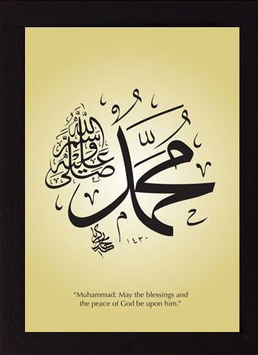 محمد
صلى الله عليه وسلم
١٤٣٠
"Muhammad: May the blessings and
the peace of God be upon him."